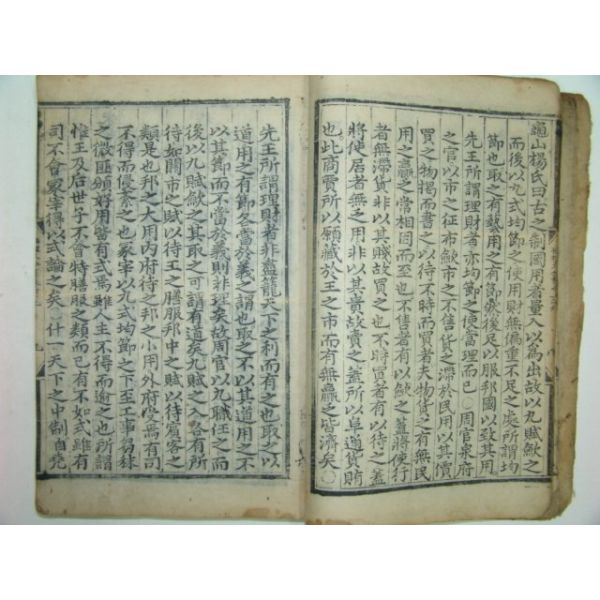 龜山楊氏曰古之制國用者量入以為出故以九賦歛之
而後以九式均節之使用財無偏重不足之處所謂均
節也取之有藝用之有節然後足以服邦國以致其用
先王所謂理財者亦均節之使當理而已○周官泉府
之官以市之征布歛市之不售貨之滯於民用以其價
買之物揭而書之以待不時而買者夫物貨之有無民
用之贏乏常相因而至也不售者有以歛之蓋將使行
者無滯貨非以其賤故買之也不時買者有以待之蓋
將使居者無乏用非以其貴故賣之蓋所以阜通貨賄
也此商賈所以願藏於王之市而有無贏乏皆濟矣○
先王所謂理財者非盡籠天下之利而有之也取之以
道用之有節各當於義之謂也取之不以其道用之不
以其節而不當於義則非理矣故周官以九職任之而
後以九賦歛之其取之可謂有道矣九賦之入各有所
待如關市之賦以待王之膳服邦中之賦以待賓客之
類是也邦之大用內府待之邦之小用外府受焉有司
不得而侵紊之也冢宰以九式均節之下至工事芻秣
之微匪頒好用皆有式焉雖人主不得而逾之也所謂
惟王及后世子不會特膳服之類而已有不如式雖有
司不會冢宰得以式論之矣○什一天下之中制自堯